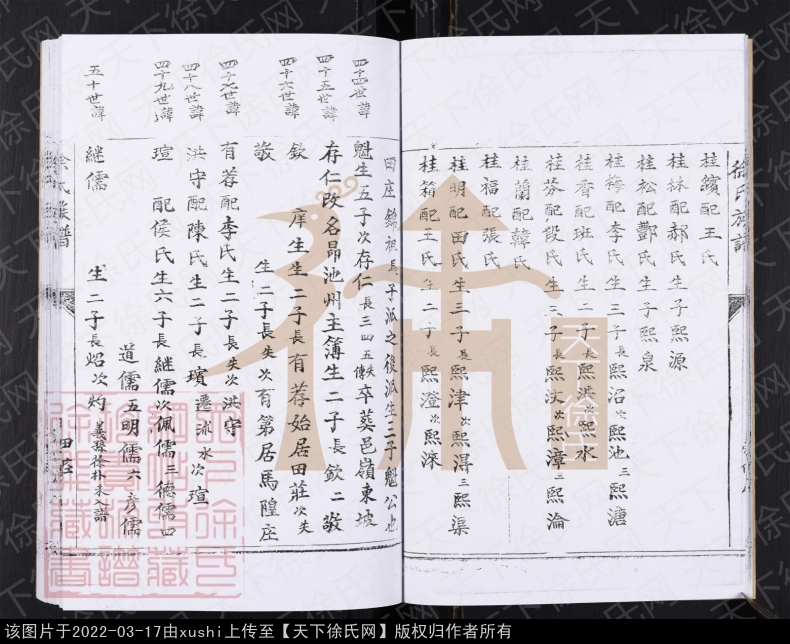 徐氏族譜
桂繽配王氏
桂林配郝氏生子熙源
桂松配酆氏生子熙泉
桂梅配李氏生三子長熙沼次熙池三熙溏
桂香配班氏生二子長熙洪次熙水
桂芬配段氏生三子長熙汶次熙漳三熙淪
桂蘭配韓氏
桂福配張氏
桂明配田氏生三子長熙津次熙潯三熙渠
桂箱配王氏生二子長熙澄次熙深
四庄錦祖長子派之後派生二子魁公也
四十四世諱 魁生五子次存仁長三四五俱失卒葵邑嶺東坡
四十五世諱 存仁改名昂池州主簿生二子長欽二敬
四十六世諱 欽 庠生生二子長有荐始居田莊次失
敬 生二子長失次有第居馬隍庄
四十七世諱 有荐配李氏生二子長失次洪守
四十八世諱 洪守配陳氏生二子長璸遷沭水次瑄
四十九世諱 瑄 配侯氏生六子長継儒次佩儒三德儒四
道儒五明儒六彦儒
五十世諱 継儒 生二子長炤次灼
徐氏族譜
四庄
天下徐氏
该图片于2022-03-17由xushi上传至【天下徐氏网】版权归作者所有